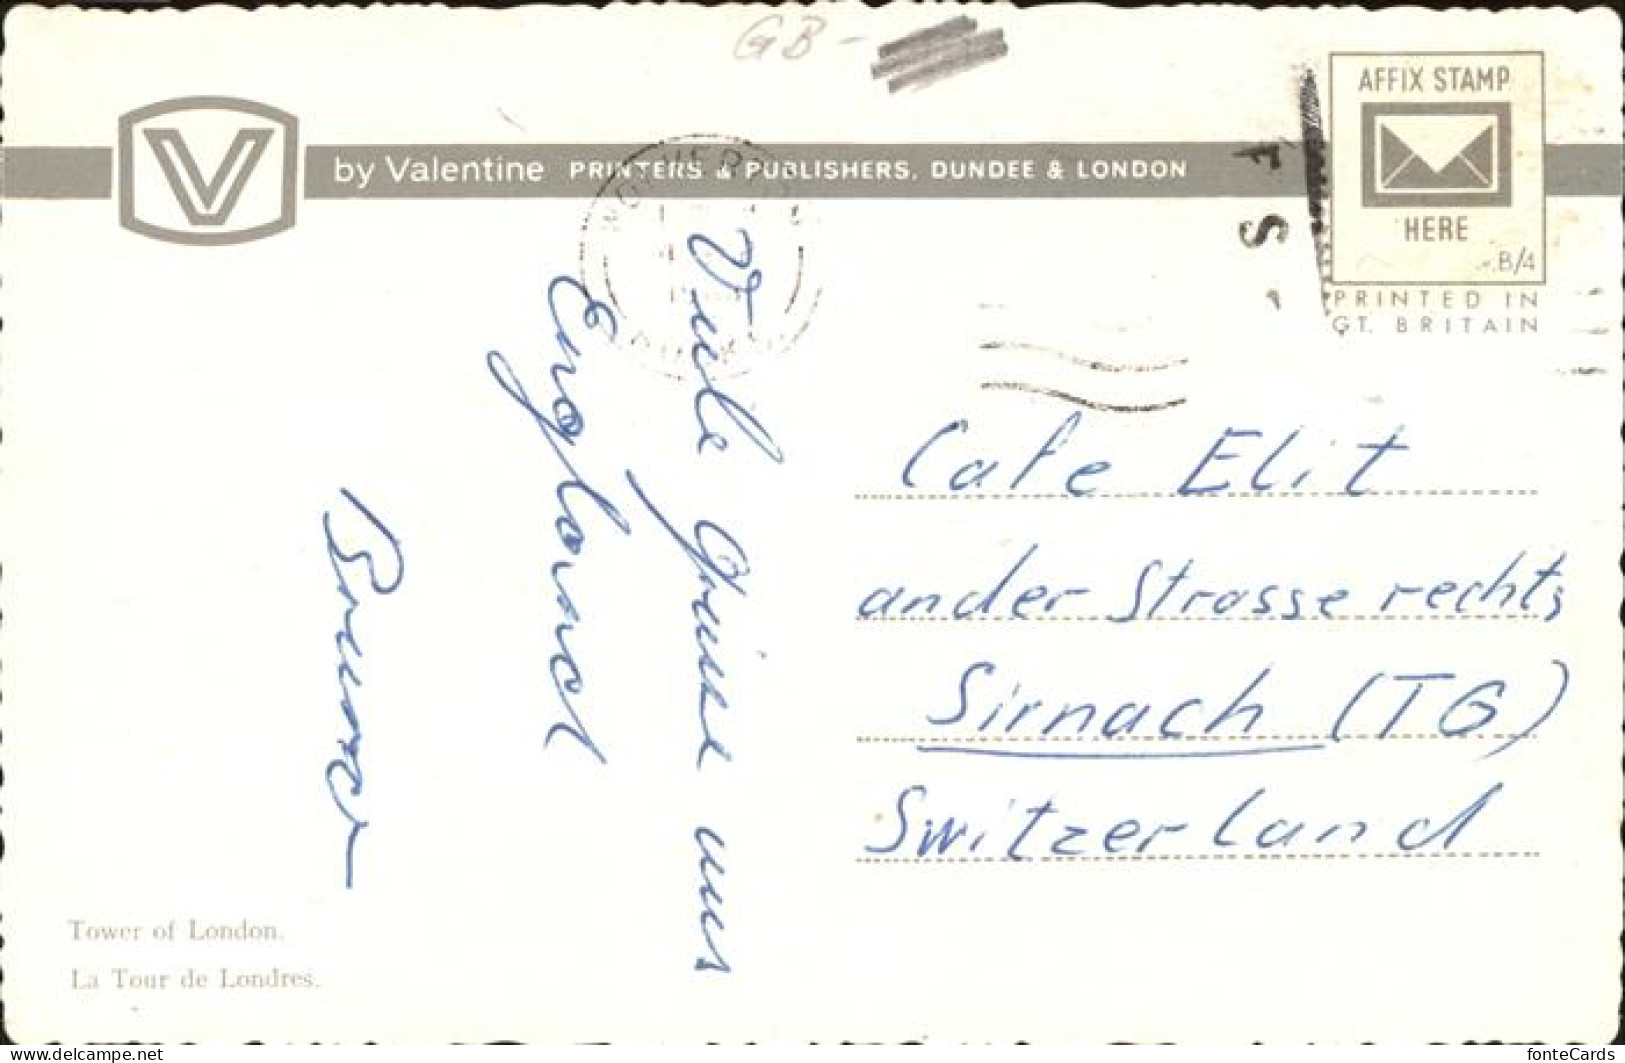 GB -
by Valentine PRINTERS & PUBLISHERS, DUNDEE & LONDON
AFFIX STAMP
HERE
B/4
PRINTED IN
GT. BRITAIN
Viele Grüsse aus
England
Bruno
Cafe Elit
an der Strasse rechts
Sirnach (TG)
Switzerland
Tower of London.
La Tour de Londres.
https://www.delcampe.net
fonteCards